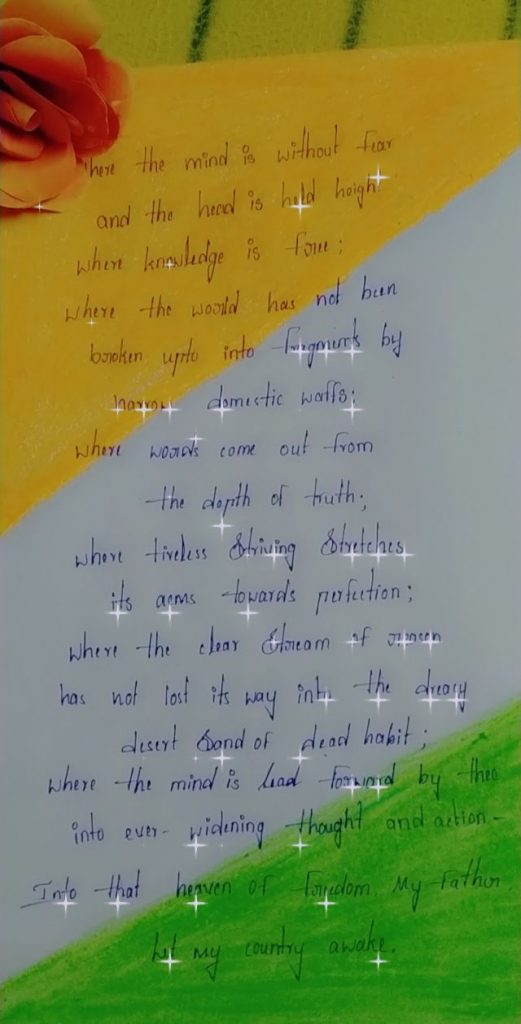 where the mind is without fear
and the head is held heigh
where knowledge is free;
where the world has not been
broken upto into fragments by
narrow domestic walls;
where words come out from
the depth of truth;
where tireless striving stretches
its arms towards perfection;
where the clear stream of reason
has not lost its way into the dreary
desert sand of dead habit;
where the mind is lead forward by thee
into ever-widening thought and action-
Into that heaven of freedom, My Father
Let my country awake.